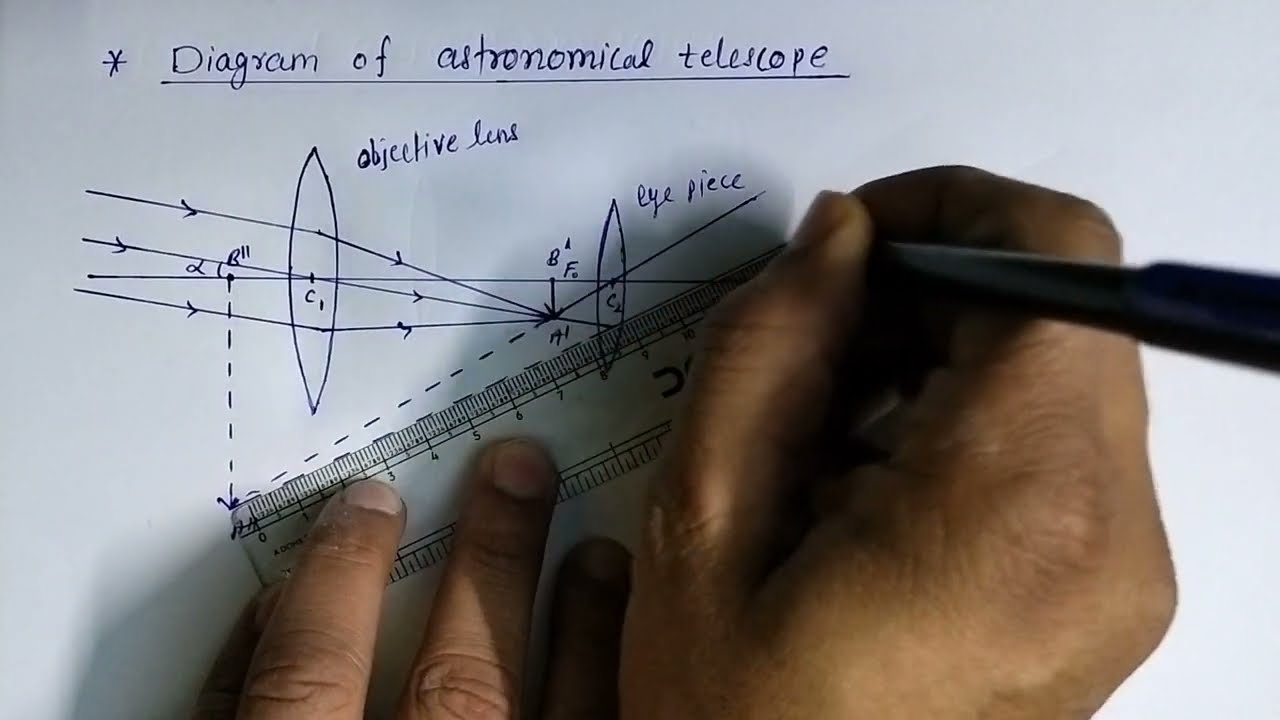 * Diagram of astronomical telescope
objective lens
eye piece
α B"
B' F₀
C₁
C₂
A'
A"
0 1 3 4 5 6 7 8 9 10